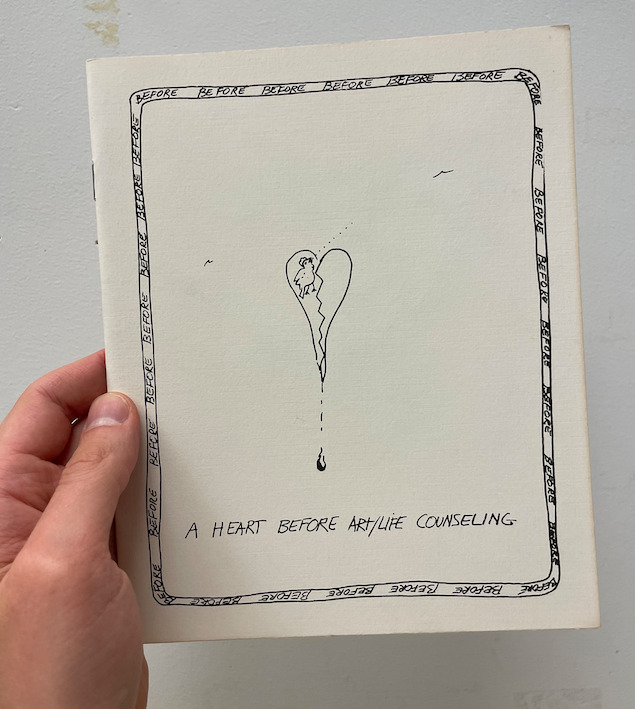 BEFORE BEFORE BEFORE BEFORE BEFORE BEFORE BEFORE
BEFORE BEFORE BEFORE BEFORE BEFORE BEFORE BEFORE BEFORE
BEFORE BEFORE BEFORE BEFORE BEFORE BEFORE BEFORE BEFORE
A HEART BEFORE ART/LIFE COUNSELING
BEFORE BEFORE BEFORE BEFORE BEFORE BEFORE